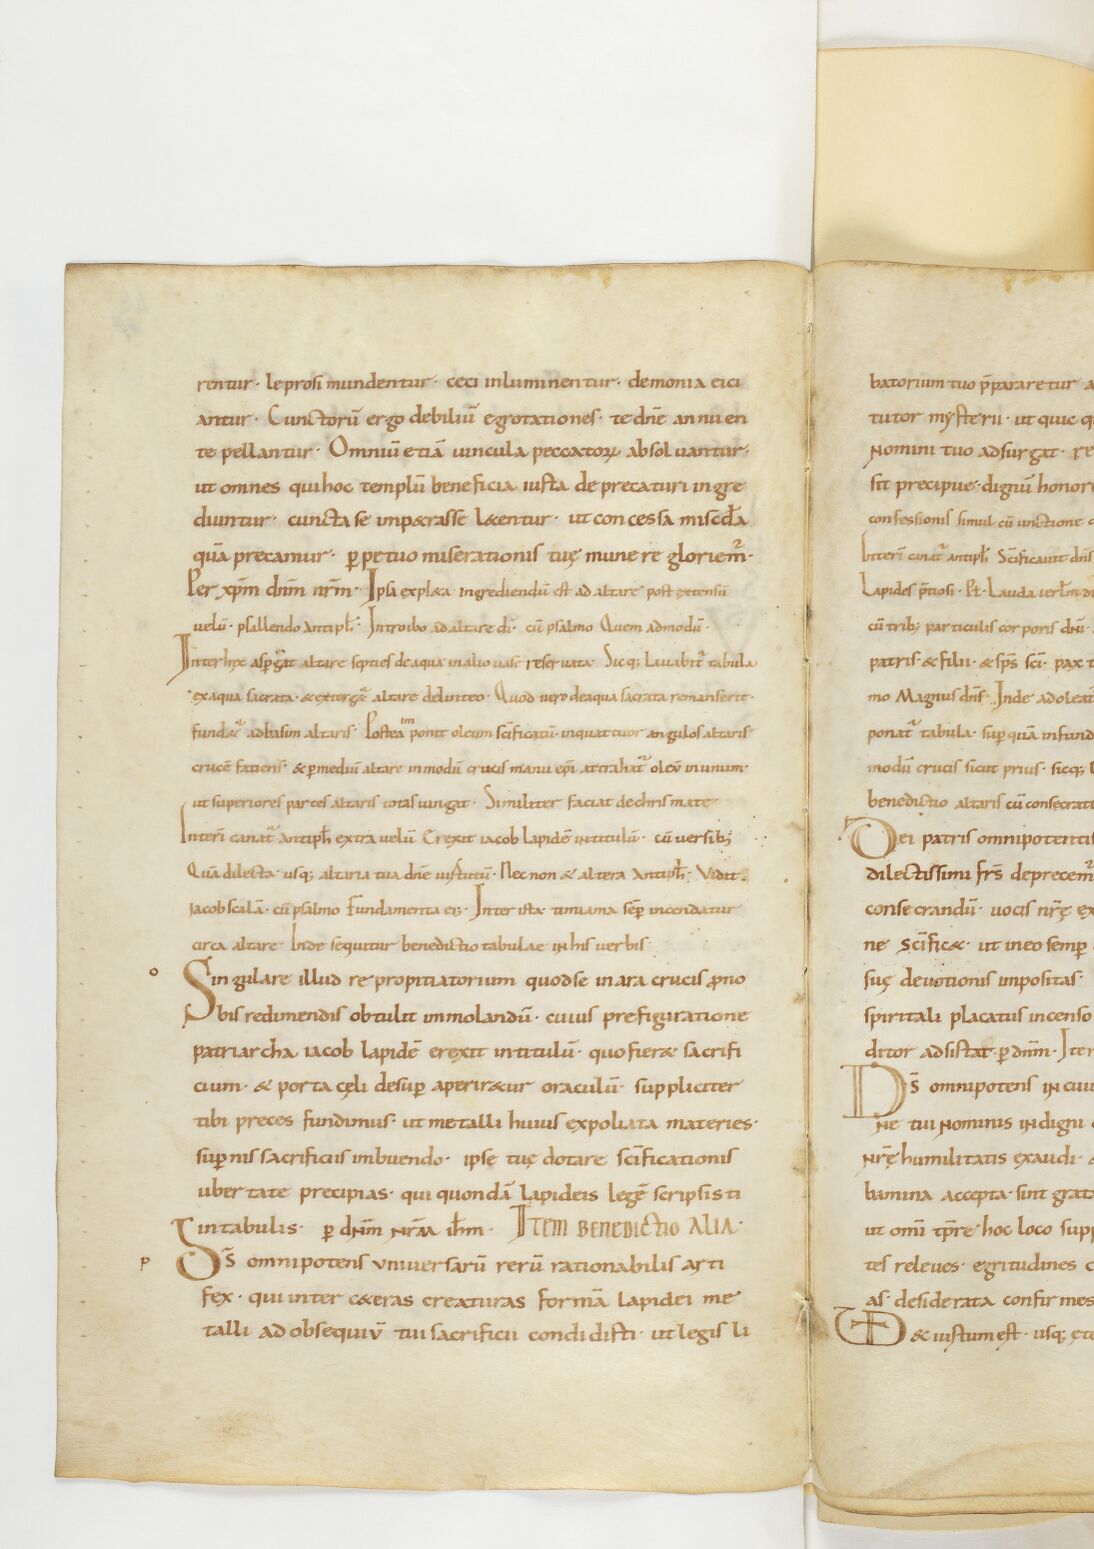 rentur · leprosi mundentur · ceci inluminentur · demonia eici
antur · Cunctorū ergo debiliū egrotationes · te dn̄e annuen
te pellantur · Omniū etiā uincula peccatoꝝ absoluantur ·
ut omnes qui hoc templū beneficia iusta deprecaturi ingre
diuntur · cuncta se imp&rasse l&entur · ut concessa
quā precamur · ꝑpetuo miserationis tuę munere gloriem̄ ·
Per xp̄m dn̄m nr̄m · Ipsa expl&a ingrediendū est ad altare post extensū
uelū · psallendo Antiph̄ · Introibo ad altare di · cū psalmo Quem admodū ·
Inter hęc altare septies de aqua in alio uase reseruata · Sicq; tabula
ex aqua sacrata · & altare de linteo · Quod uero de aqua sacrata remanserit ·
ad basim altaris · Postea ponit oleum sc̄ificatū · in quattuor angulos altaris
crucē faciens · & ꝑ mediū altare in modū crucis manu ep̄i oleū in unum ·
ut superiores partes altaris totas ungat · Similiter faciat de chrismate
Interī Antiph̄ extra uelū Erexit iacob lapidē in titulū · cū uersib;
Quā dilecta · usq; altaria tua dn̄e uirtutū · Nec non & altera Antiph̄ · Vidit
Iacob scalā · cū psalmo Fundamenta ei; · Inter ista timiama sēp incendatur
circa altare · Inde sequitur benedictio tabulae in his uerbis
o Singulare illud repropitiatorium quod se in ara crucis ꝓ no
bis redimendis obtulit immolandū · cuius prefiguratione
patriarcha iacob lapidē erexit in titulū · quo fier& sacrifi
cium · & porta cęli desuꝑ aperir&ur oraculū · suppliciter
tibi preces fundimus · ut metalli huius expoliata materies ·
suꝑnis sacrificiis imbuendo · ipse tuę dotare sc̄ificationis
ubertate precipias · qui quondā lapideis legē scripsisti
in tabulis · ꝑ dn̄m nr̄m ih̄m · Item benedictio alia ·
p Ds̄ omnipotens uniuersarū rerū rationabilis arti
fex · qui inter c&eras creaturas formā lapidei me
talli ad obsequiū tui sacrificii condidisti · ut legis li
batorium tuo p̄pararetur
tutor mysterii · ut quic
nomini tuo adsurgat ·
sit precipue · dignū honor
confessionis simul cū unctione
Interī antiph̄ Sc̄ificauit dn̄s
Lapides p̄tiosi · Ps̄ · Lauda
cū trib; particulis corporis dn̄i ·
patris · & filii · & sp̄s sc̄i · pax
mo Magnus dn̄s · Inde adoleat
ponat̄ tabula · suꝑ quā infund
modū crucis sicut prius · sicq;
benedictio altaris cū consecrati
Dei patris omnipotentis
dilectissimi fr̄s deprecem̄
consecrandū · uocis nr̄ę ex
ne sc̄ific& · ut in eo semꝑ
suę deuotionis impositas ·
spiritali placatus incenso
ditor adsistat · ꝑ dn̄m · Iter
Ds̄ omnipotens in cuiu
ne tui nominis indigni
nr̄ę humilitatis exaudi ·
bamina accepta · sint grata
ut omi tp̄re hoc loco supp
tes releues · egritudines c
as · desiderata confirmes
VD & iustum est · usq; ete